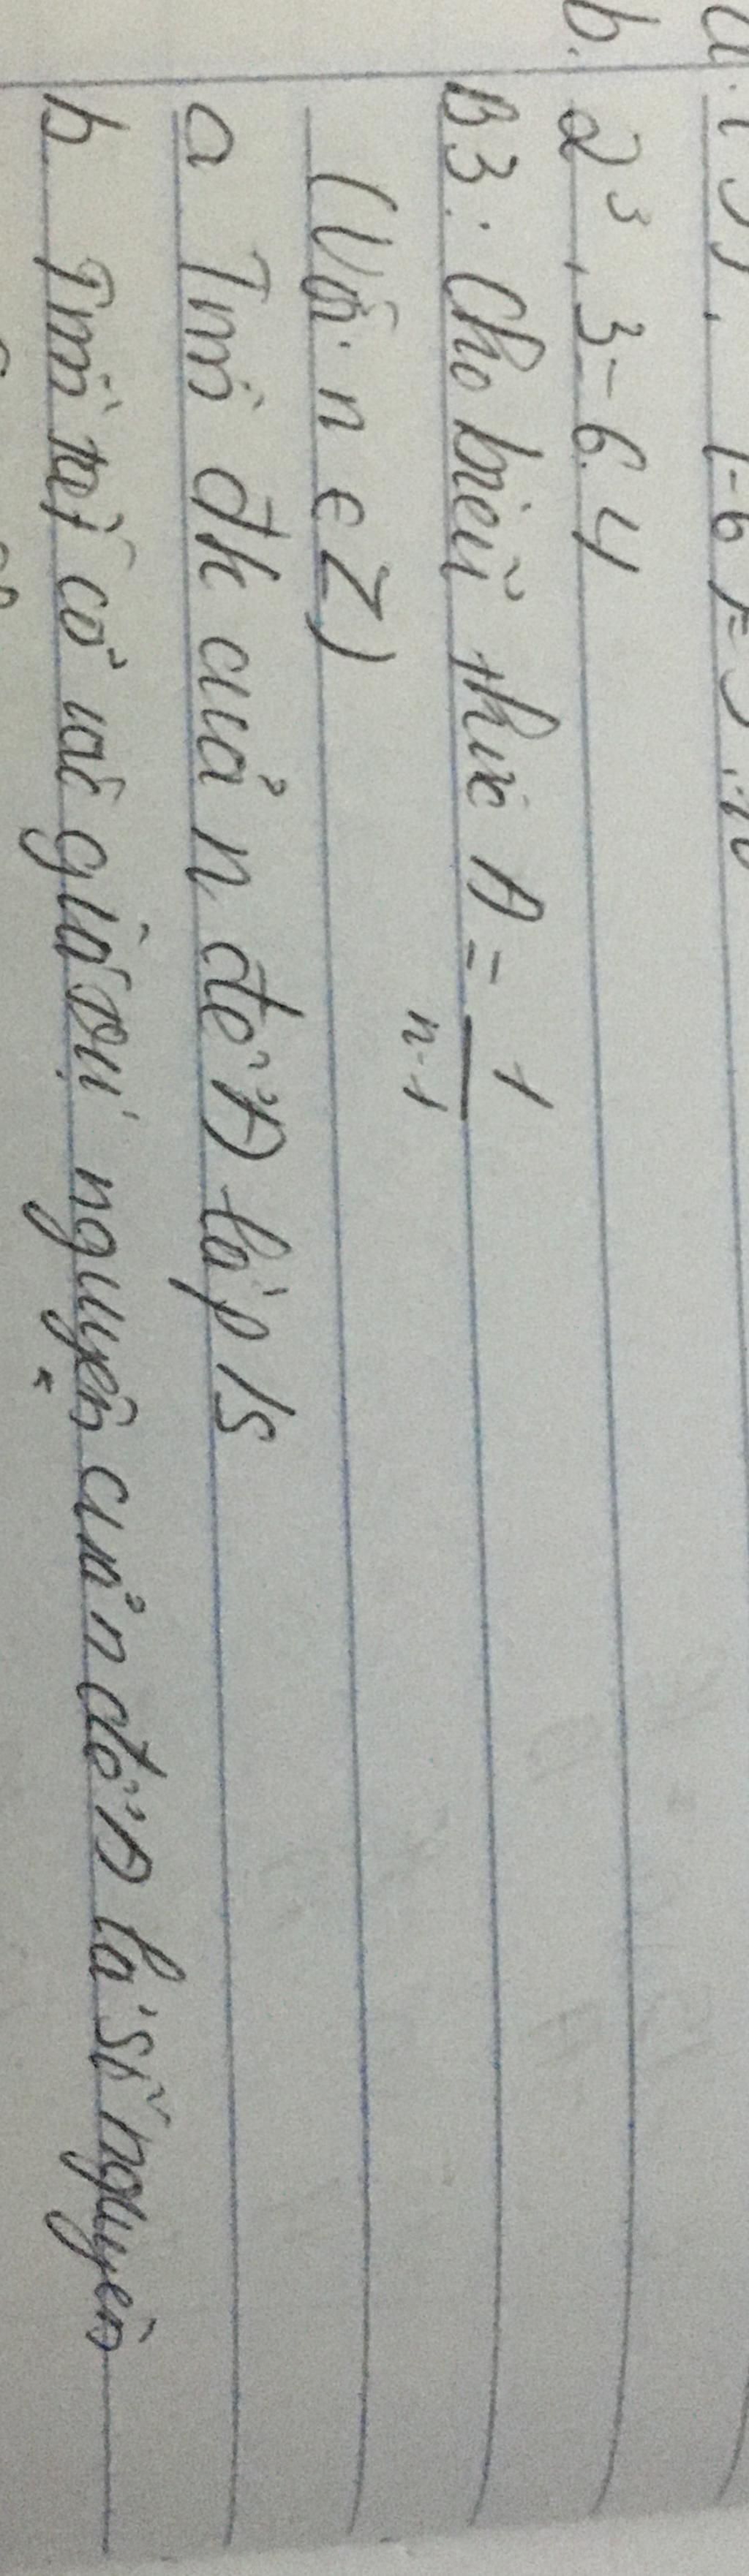 b. 2³.3-6.4
B3: Cho biểu thức A = 1/n-1
(Với n ∈ Z)
a Tìm đk của n để A là p/s
b. Tìm tất cả các giá trị nguyên của n để A là số nguyên